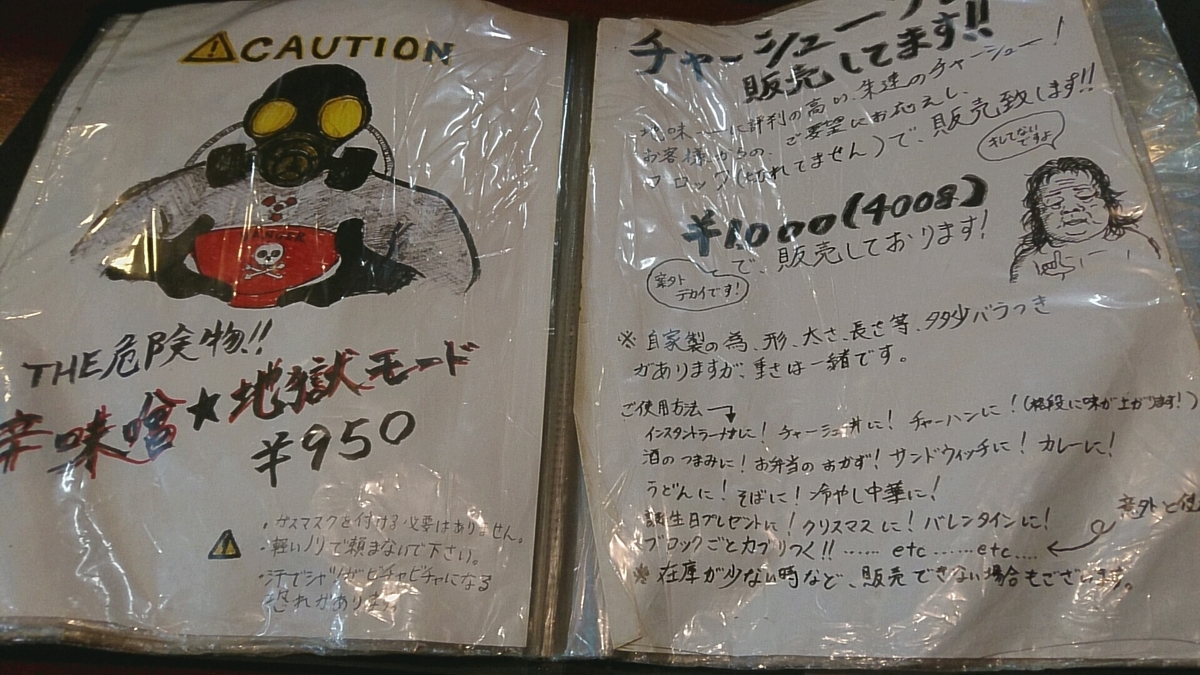 CAUTION
THE危険物!!
辛味噌★地獄モード
¥950
・ガスマスクを付ける必要はありません。
・軽いノリで頼まないで下さい。
・汗でシャツがビチャビチャになる
恐れがあります。
チャーシュー
販売してます!!
地味ーに評判の高い、朱達のチャーシュー!
お客様からの、ご要望にお応えし、
ブロック(切れてません)で、販売致します!!
キレてない
ですよ
¥1.000(400g)
で、販売しております!
案外
デカイです!
※自家製の為、形、太さ、長さ等、多少バラつき
がありますが、重さは一緒です。
ご使用方法
インスタントラーメンに!チャーシュー丼に!チャーハンに!(格段に味が上がります!)
酒のつまみに!お弁当のおかず!サンドウィッチに!カレーに!
うどんに!そばに!冷やし中華に!
誕生日プレゼントに!クリスマスに!バレンタインに!
意外と
ブロックごとカブりつく!!……etc……etc….
※在庫が少ない時など、販売できない場合もございます。